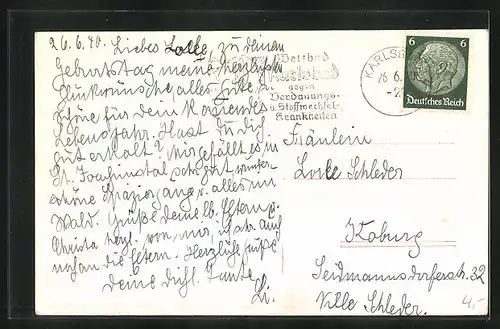 26.6.40. Liebes Lolle, zu deinem
Geburtstag meine herzlichsten
Glückwünsche, alles Gute u.
Schöne für dein kommendes
Lebensjahr. Hast du dich
gut erholt? Mir gefällt es in
St. Joachimstal sehr gut, wunder-
schöne Spazier, alles im
Wald. Grüße deine lb. Eltern u.
Christa herzl. von mir, auch
die Eltern. Herzlich grüßt
deine Tante
Li.
Weltbad
Karlsbad
gegen
Verdauungs-
u. Stoffwechsel-
Krankheiten
KARLSBAD
26.6.
6 6
Deutsches Reich
Fräulein
Lolle Schleder
Koburg
Seidmannsdorferstr. 32
Villa Schleder.
4,-